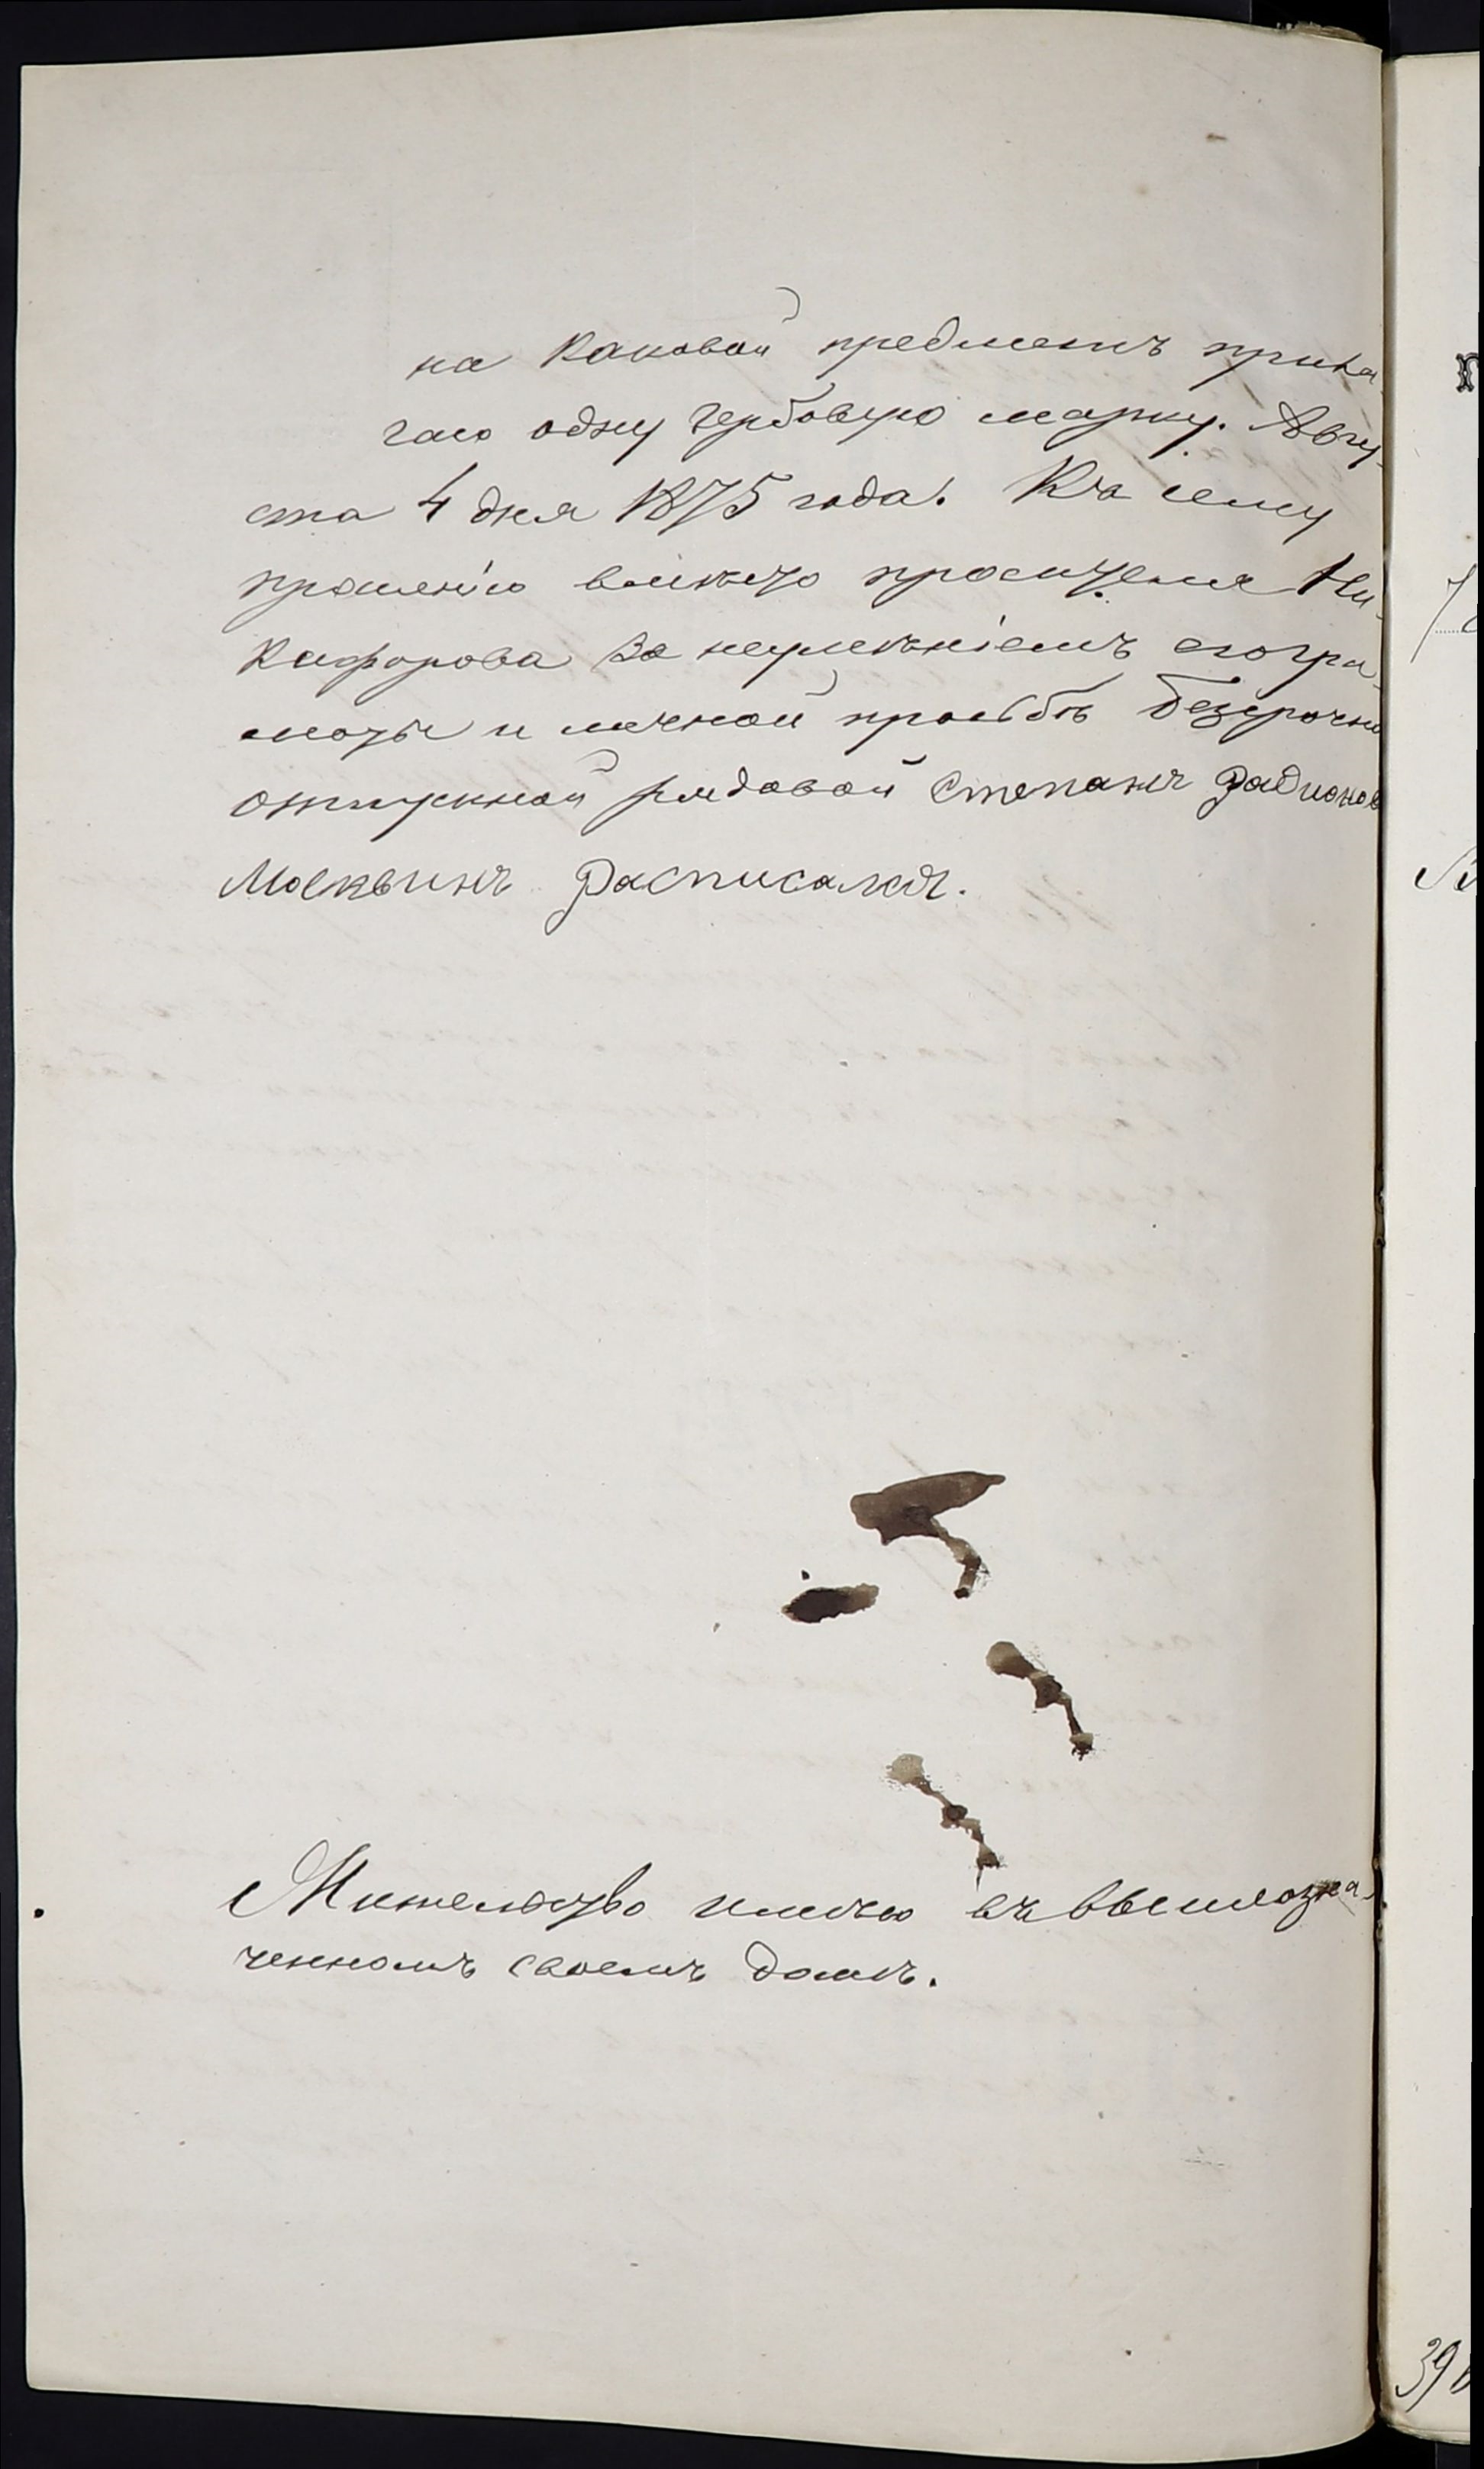 на каковой предметъ прила
гаю одну гербовую марку. Авгу-
ста 4 дня 1875 года. Къ сему
прошенію вмѣсто просителя Ни-
кифорова за неумѣніемъ его гра-
моты и личной прозьбѣ безсрочно
отпускной рядовой Степанъ Радионовъ
Москвинъ Расписался.
Жительство имѣю въ вышеозна-
ченномъ своемъ домѣ.
39